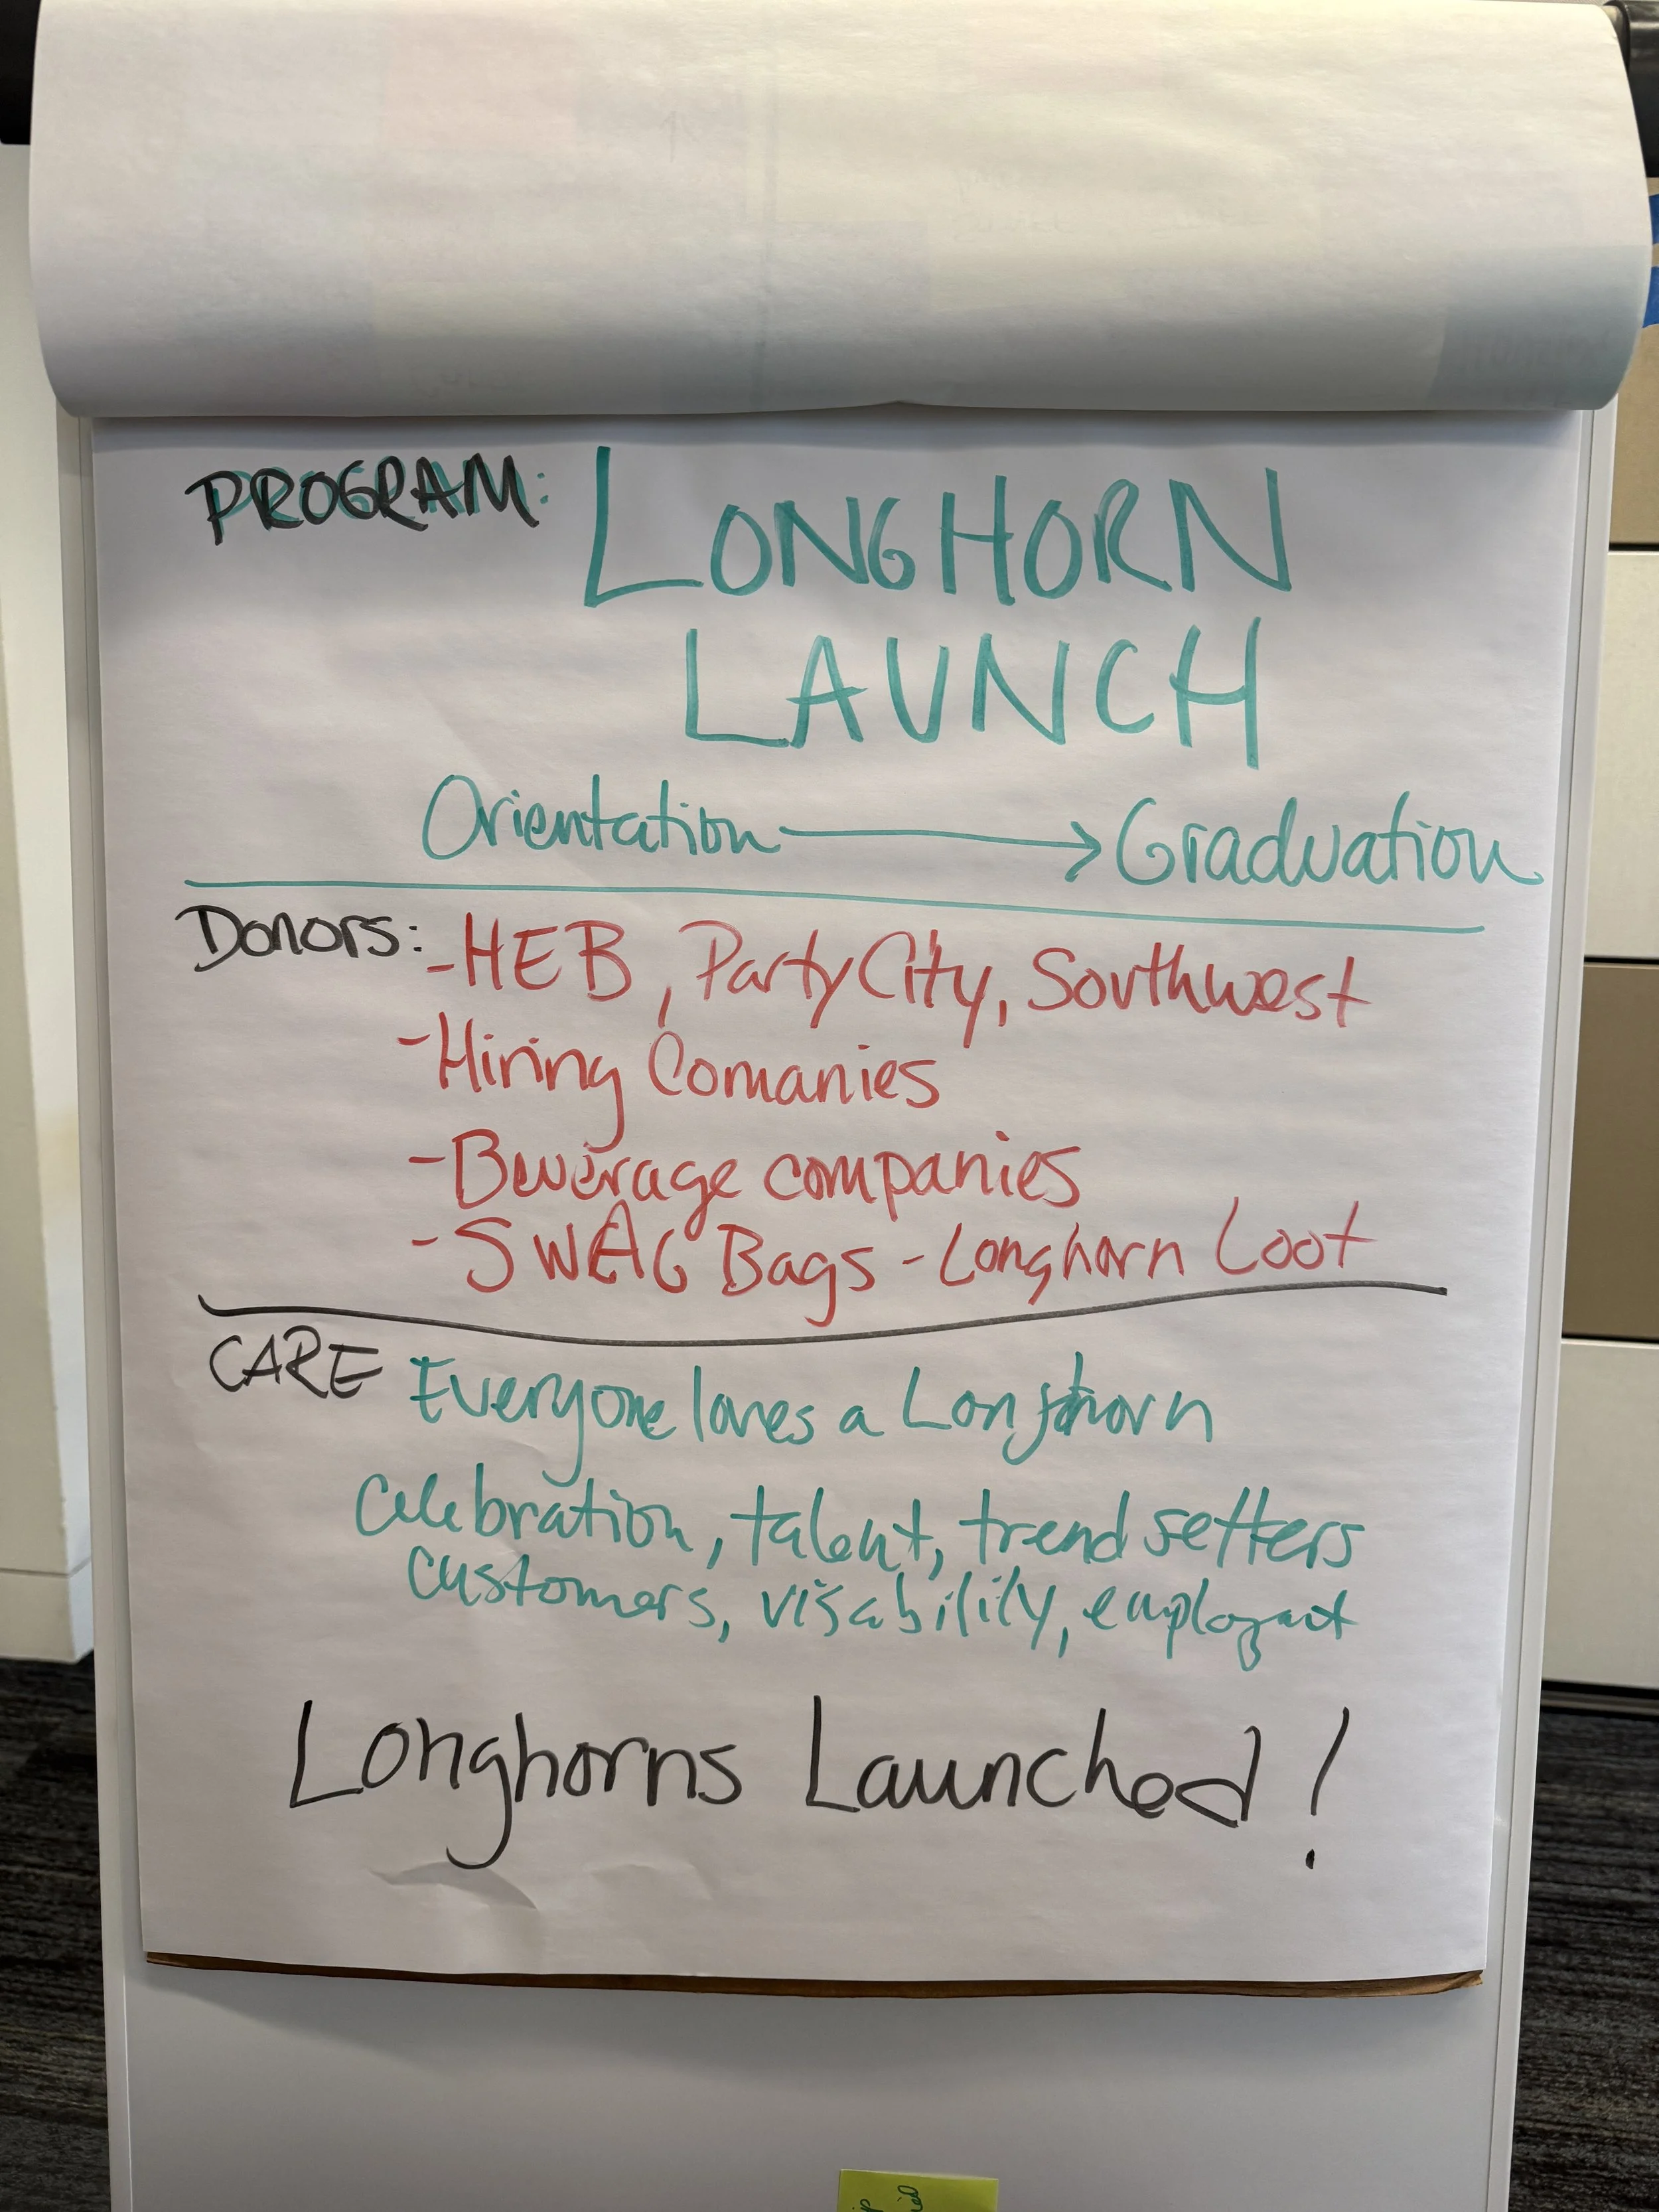 PROGRAM: LONGHORN
LAUNCH
Orientation → Graduation
Donors: - HEB, Party City, Southwest
- Hiring Comanies
- Beverage companies
- SWAG Bags - Longhorn Loot
CARE Everyone loves a Longhorn
Celebration, talent, trend setters
customers, visability, employmt
Longhorns Launched!